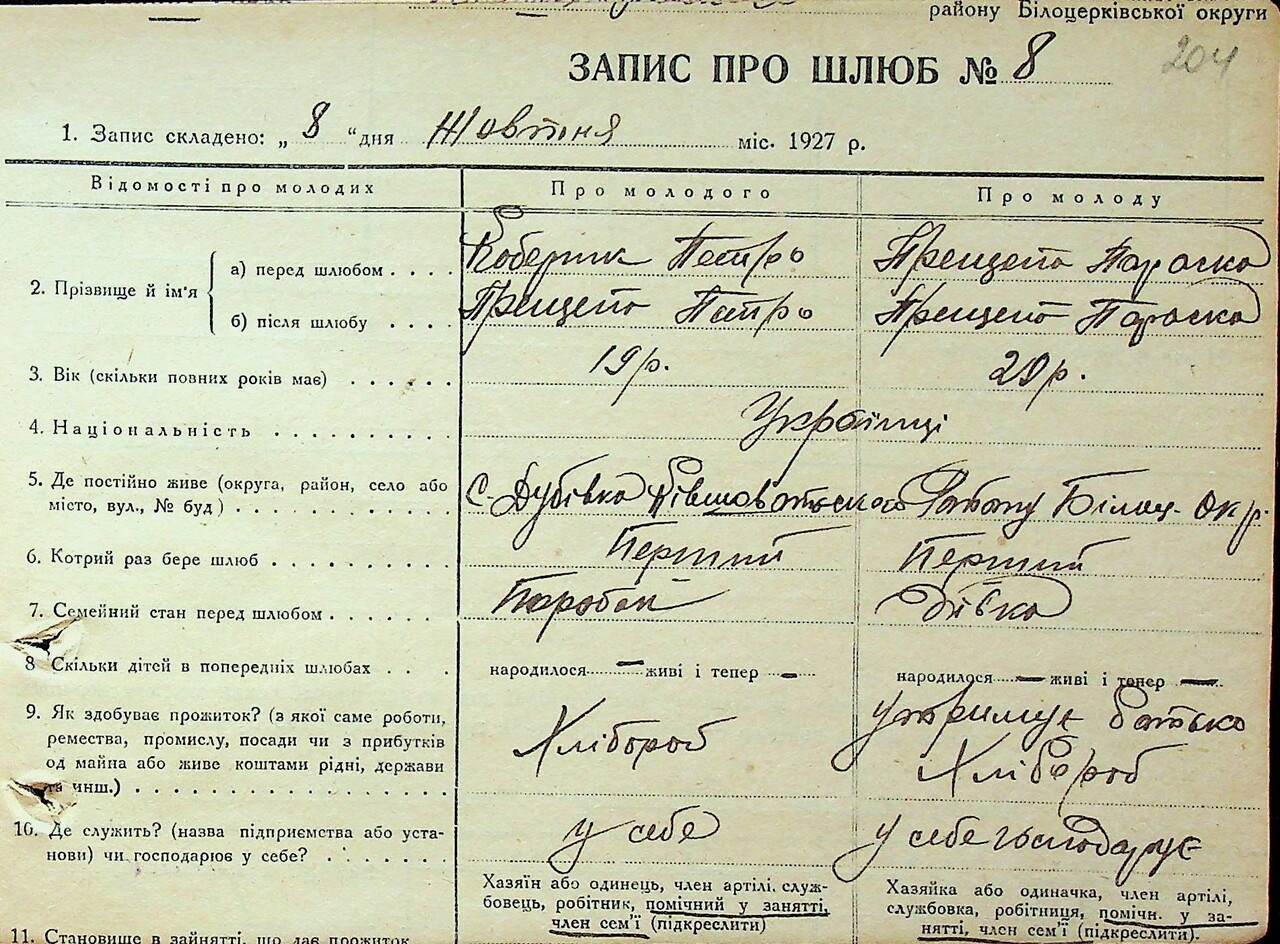 району Білоцерківської округи
204
ЗАПИС ПРО ШЛЮБ № 8
1. Запис складено: „ 8 “ дня Жовтня міс. 1927 р.
Відомості про молодих Про молодого Про молоду
2. Прізвище й ім'я
а) перед шлюбом . . . . Коберник Петро Прищепа Параска
б) після шлюбу . . . . Прищепа Петро Прищепа Параска
3. Вік (скільки повних років має) . . . . . . 19 р. 20 р.
4. Національність . . . . . . . . . . Українці
5. Де постійно живе (округа, район, село або
місто, вул., № буд) . . . . . . . . . . . с. Дубівка Ківшоватського Району Білоц. Окр.
6. Котрий раз бере шлюб . . . . . . . . . Перший Перший
7. Семейний стан перед шлюбом . . . . . . Паробок Дівка
8 Скільки дітей в попередніх шлюбах . . . народилося — живі і тепер — народилося — живі і тепер —
9. Як здобуває прожиток? (з якої саме роботи,
ремества, промислу, посади чи з прибутків
од майна або живе коштами рідні, держави
та инш.) . . . . . . . . . . . . . . . Хлібороб утримує батько Хлібороб
10. Де служить? (назва підприємства або уста-
нови) чи господарює у себе? . . . . . . у себе у себе господарує
Хазяїн або одинець, член артілі, служ-
бовець, робітник, помічний у занятті,
член сем'ї (підкреслити)
Хазяйка або одиначка, член артілі,
службовка, робітниця, помічн. у за-
нятті, член сем'ї (підкреслити).
11. Становище в зайнятті, що дає прожиток